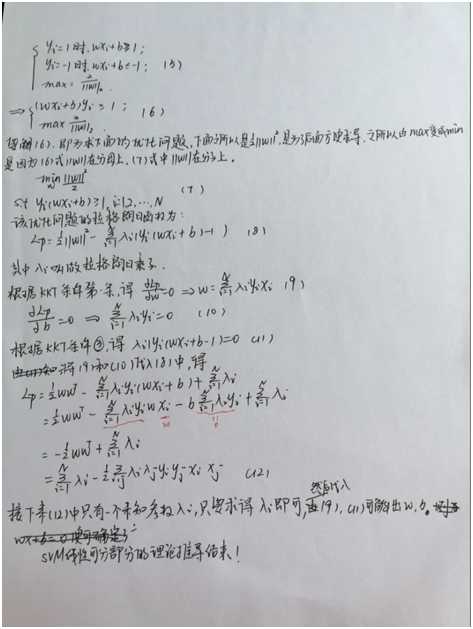 yi=1时, wxi+b≥1;
yi=-1时, wxi+b≤-1; (5)
max = 2/||w||₂.
⇒ {(wxi+b)yi ≥ 1; (6)
max 2/||w||₂
理解(6), 即为求下面的优化问题, 下面之所以是½||w||², 是为了后面方便求导, 之所以由max变成min
是因为(6)式||w||在分母上, (7)式中||w||在分子上.
min ||w||²/2
s.t yi(wxi+b)≥1, i=1,2,...,N (7)
该优化问题的拉格朗日函数为:
Lp = ½||w||² - Σ(i=1..N) λi(yi(wxi+b)-1) (8)
其中λi叫做拉格朗日乘子.
根据KKT条件第一条, 得 ∂Lp/∂w = 0 ⇒ w = Σ(i=1..N) λiyixi (9)
∂Lp/∂b = 0 ⇒ Σ(i=1..N) λiyi = 0 (10)
根据KKT条件③, 得 λi(yi(wxi+b)-1)=0 (11)
将(9)和(10)代入(8)中, 得
Lp = ½wwᵀ - Σ(i=1..N) λiyi(wxi+b) + Σ(i=1..N) λi
= ½wwᵀ - Σ(i=1..N) λiyiwxi - bΣ(i=1..N) λiyi + Σ(i=1..N) λi
w 0
= -½wwᵀ + Σ(i=1..N) λi
= Σ(i=1..N) λi - ½Σ(i,j) λiλjyiyjxixj (12)
然后代入
接下来(12)中只有一个未知参数λi, 只要求得λi即可, (9), (11)可解出w, b。
SVM线性可分部分的理论推导结束!